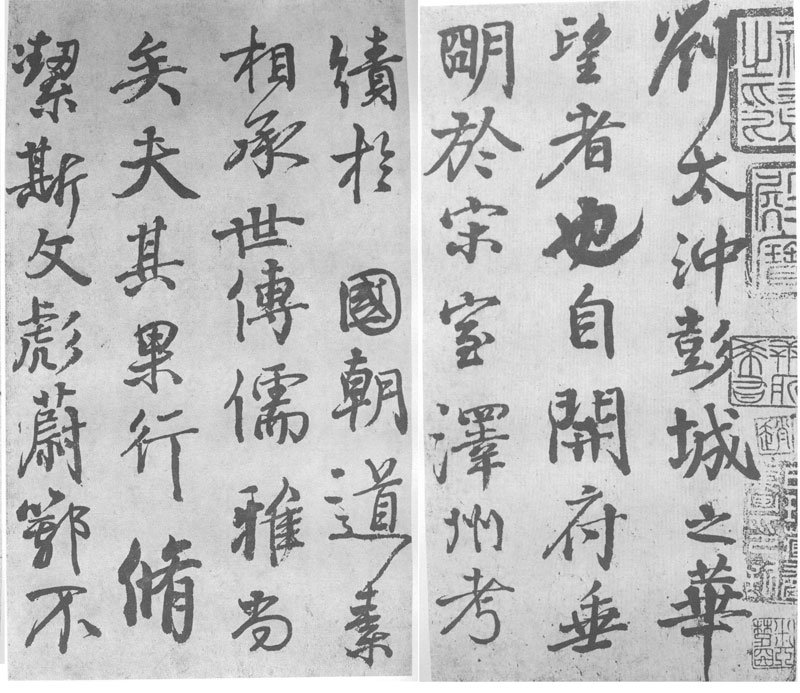 劉太沖彭城之華
望者也自開府垂
朙於宋室澤州考
績於國朝道素
相承世傳儒雅尚
矣夫其果行脩
潔斯文彪蔚鄂不